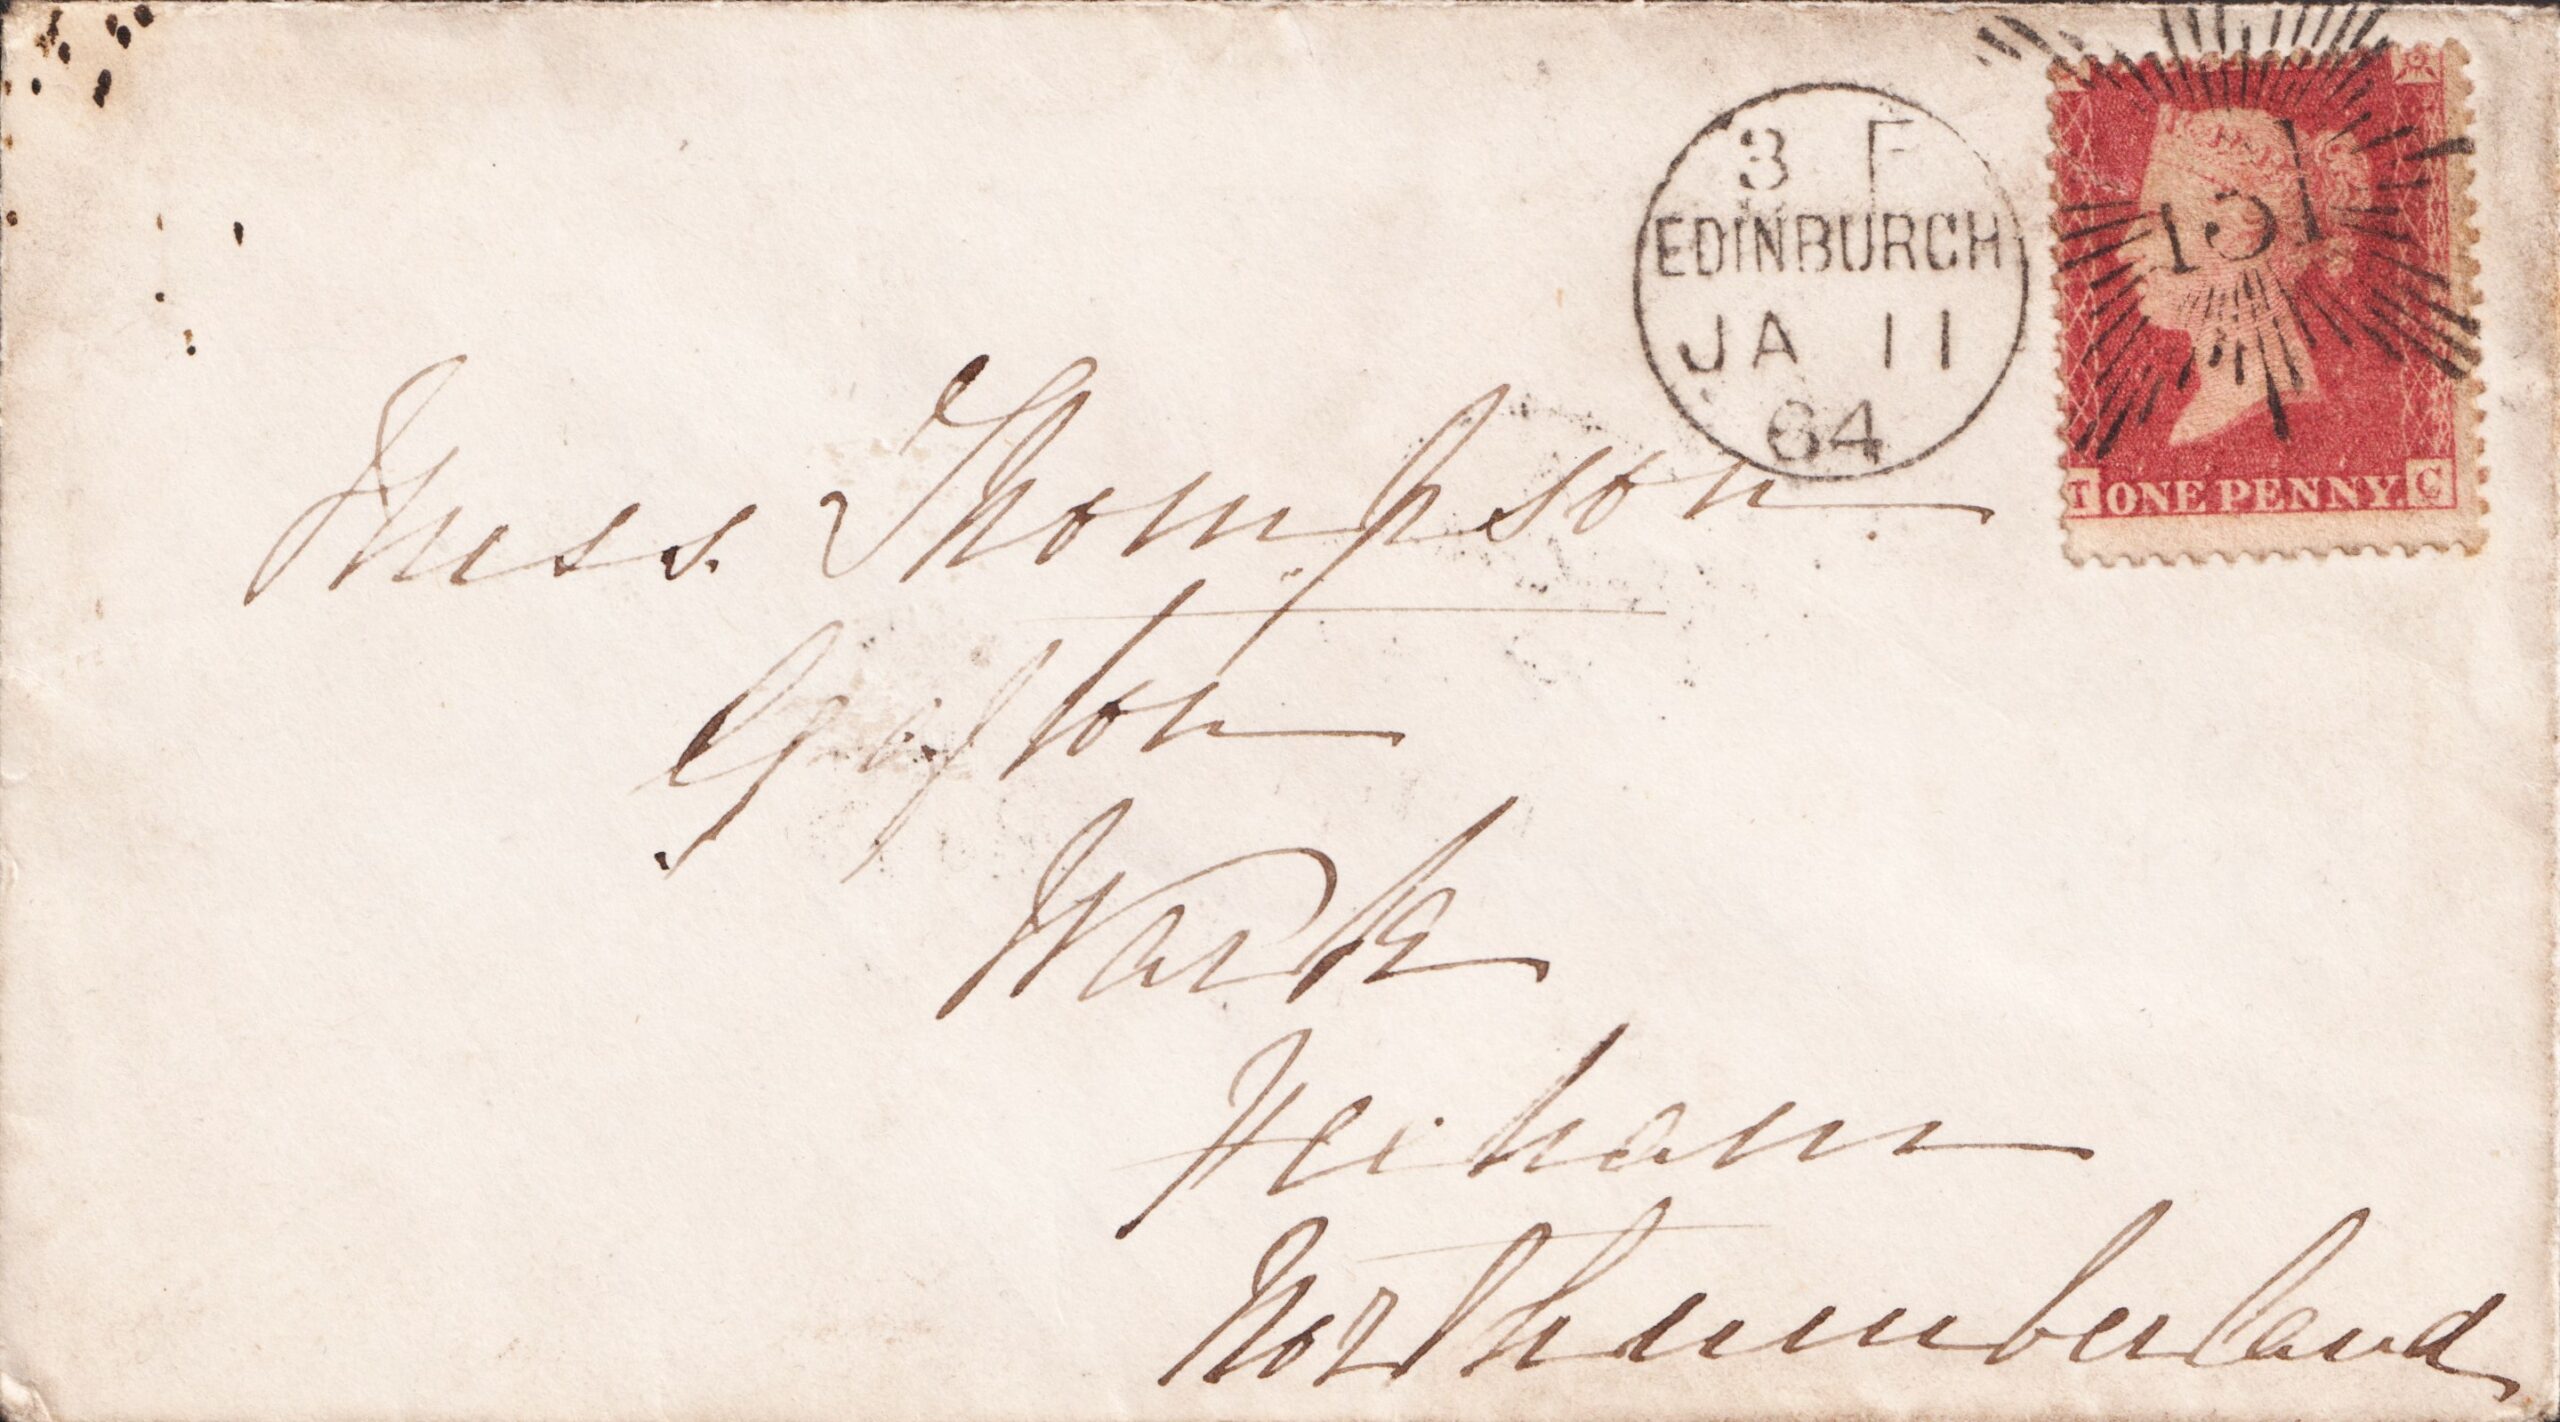 3 F
EDINBURGH
JA 11
64
131
T ONE PENNY. C
Miss. Thompson
Wark
Hexham
Northumberland